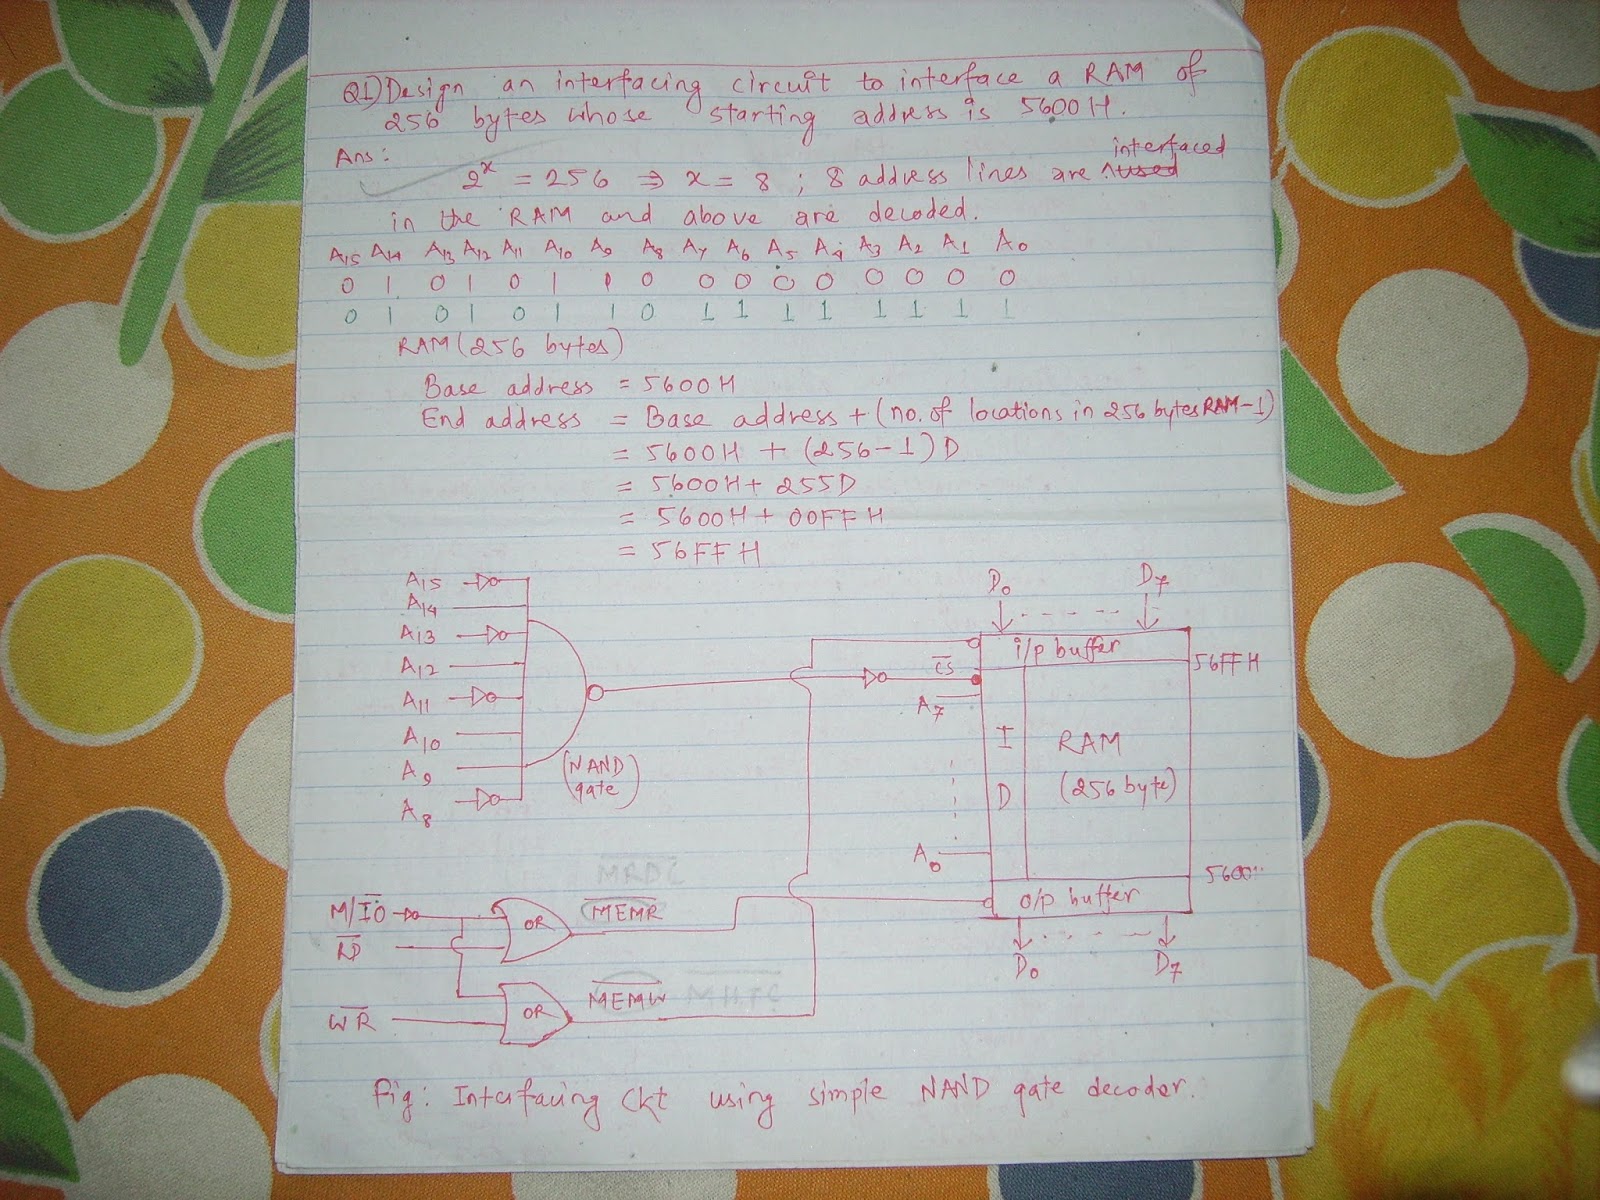 Q1) Design an interfacing circuit to interface a RAM of
256 bytes whose starting address is 5600H.
Ans:
interfaced
2^x = 256 ⇒ x = 8 ; 8 address lines are used
in the RAM and above are decoded.
A15 A14 A13 A12 A11 A10 A9 A8 A7 A6 A5 A4 A3 A2 A1 A0
0 1 0 1 0 1 1 0 0 0 0 0 0 0 0 0
0 1 0 1 0 1 1 0 1 1 1 1 1 1 1 1
RAM (256 bytes)
Base address = 5600H
End address = Base address + (no. of locations in 256 bytes RAM-1)
= 5600H + (256-1)D
= 5600H + 255D
= 5600H + 00FFH
= 56FFH
A15
A14
A13
A12
A11
A10
A9
A8
(NAND gate)
D0 - - - - - D7
i/p buffer
56FFH
C̅S̅
A7
I
D
RAM
(256 byte)
A0
5600H
o/p buffer
D0 - - - - D7
MRDC
M/I̅O̅
R̅D̅
OR
M̅E̅M̅R̅
W̅R̅
OR
M̅E̅M̅W̅
Fig: Interfacing ckt using simple NAND gate decoder.